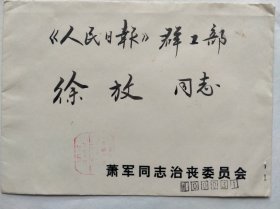 《人民日報》群工部
徐放 同志
萧军同志治丧委员会